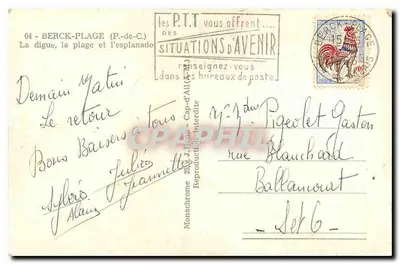 64 - BERCK-PLAGE (P.-de-C.)
La digue, la plage et l'esplanade
les P.T.T vous offrent....
DES
SITUATIONS D'AVENIR
renseignez-vous
dans les bureaux de poste
BERCK-PLAGE
Demain Matin
Le retour
Bons Baisers à tous
Julien
Jeannette
Alain
Reproduction interdite
Mr Mme Pigeolet Gaston
rue Blanchard
Ballancourt
S et O